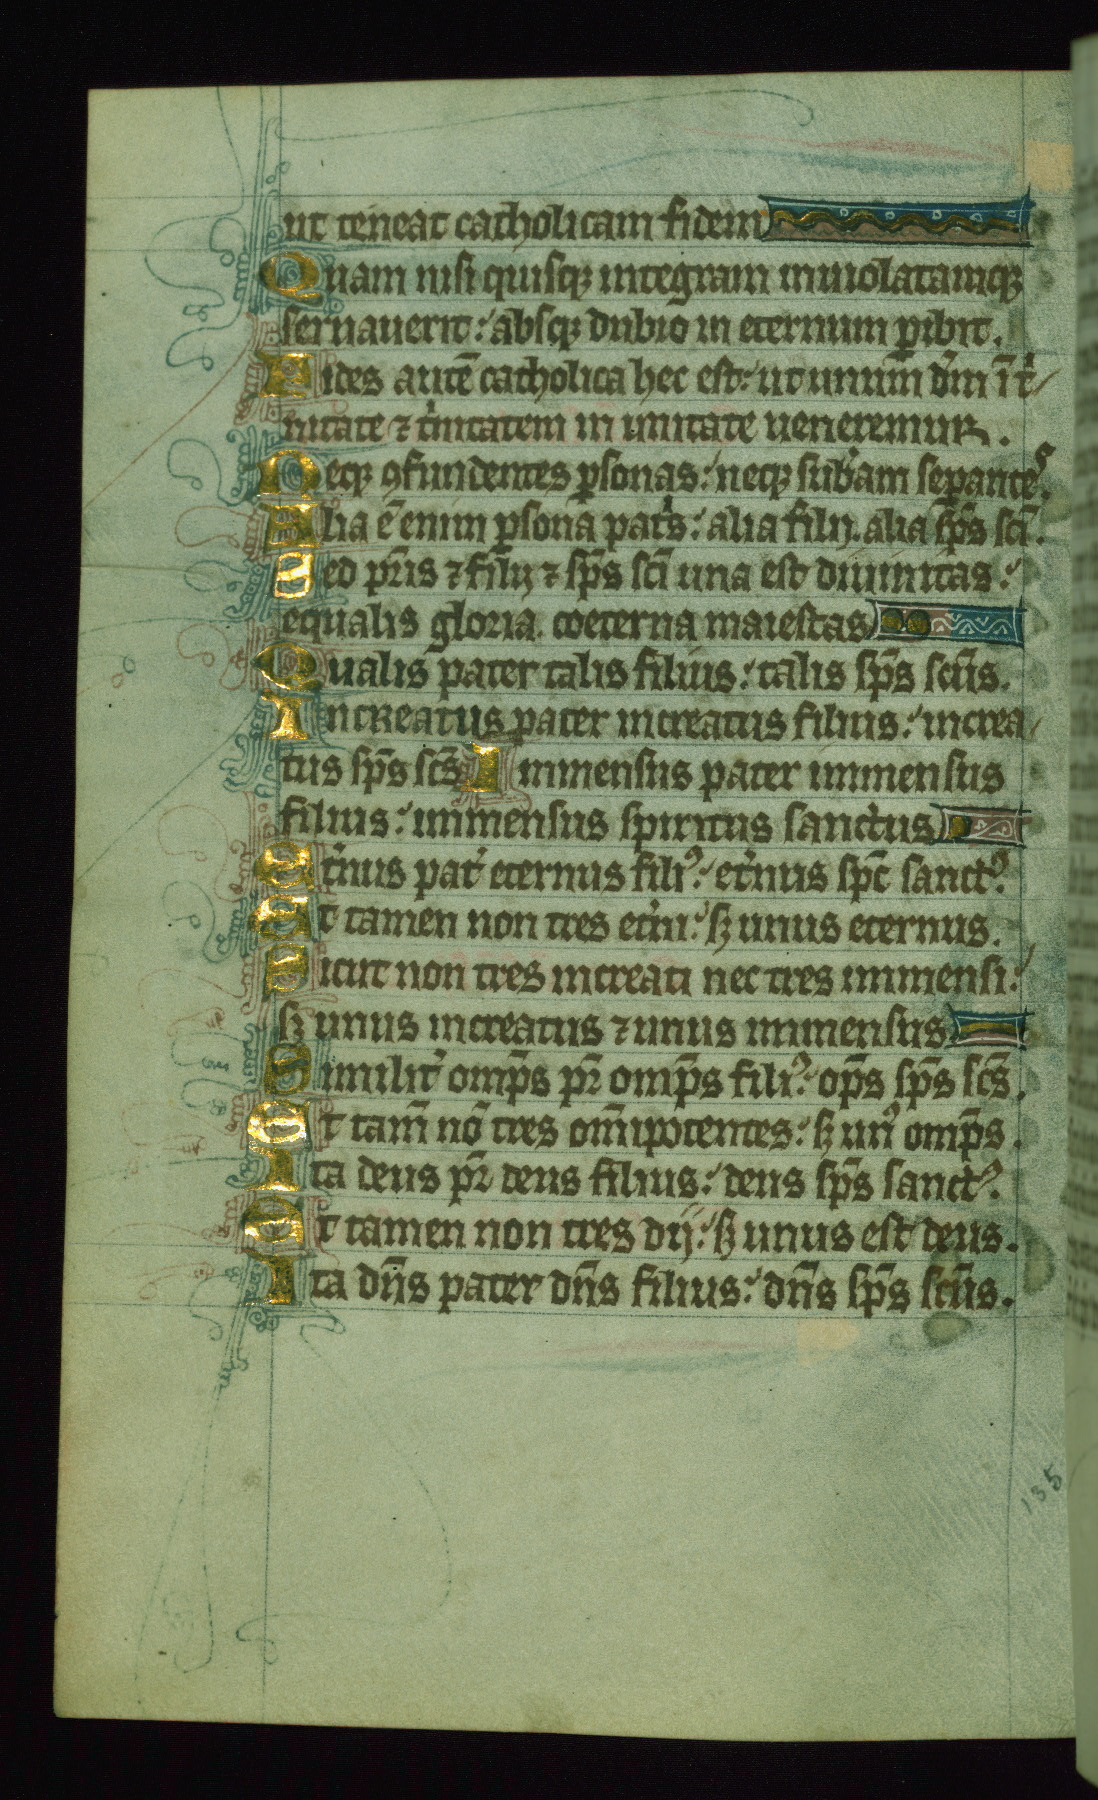 ut teneat catholicam fidem
Quam nisi quisqꝫ integram inuiolatamqꝫ
seruauerit: absqꝫ dubio in eternum ꝑibit.
Fides autē catholica hec est: ut unum dm̄ ī tͥ
nitate ⁊ tͥnitatem in unitate ueneremur.
Neqꝫ ꝯfundentes ꝑsonas: neqꝫ sub̄am seꝑantes.
Alia ē enim ꝑsona patͥs: alia filij. alia sp̄s sc̄i.
Sed pr̄is ⁊ filij ⁊ sp̄s sc̄i una est diuinitas:
equalis gloria. coeterna maiestas
Qualis pater talis filius: talis sp̄s sc̄us.
Increatus pater increatus filius: increa
tus sp̄s sc̄s Immensus pater immensus
filius: immensus spiritus sanctus
Et̓nus pat̓ eternus filiꝰ: et̓nus sp̄c sanctꝰ.
Et tamen non tres et̓ni: sꝫ unus eternus.
Sicut non tres increati nec tres immensi:
sꝫ unus increatus ⁊ unus immensus
Similit̓ omp̄s pr̄ omp̄s filiꝰ: op̄s sp̄s sc̄s.
Et tam̄ nō tres om̄ipotentes: sꝫ unꝰ omp̄s.
Ita deus pr̄ deus filius: deus sp̄s sanctꝰ.
Et tamen non tres dij: sꝫ unus est deus.
Ita dn̄s pater dn̄s filius: dn̄s sp̄s sc̄us.
135